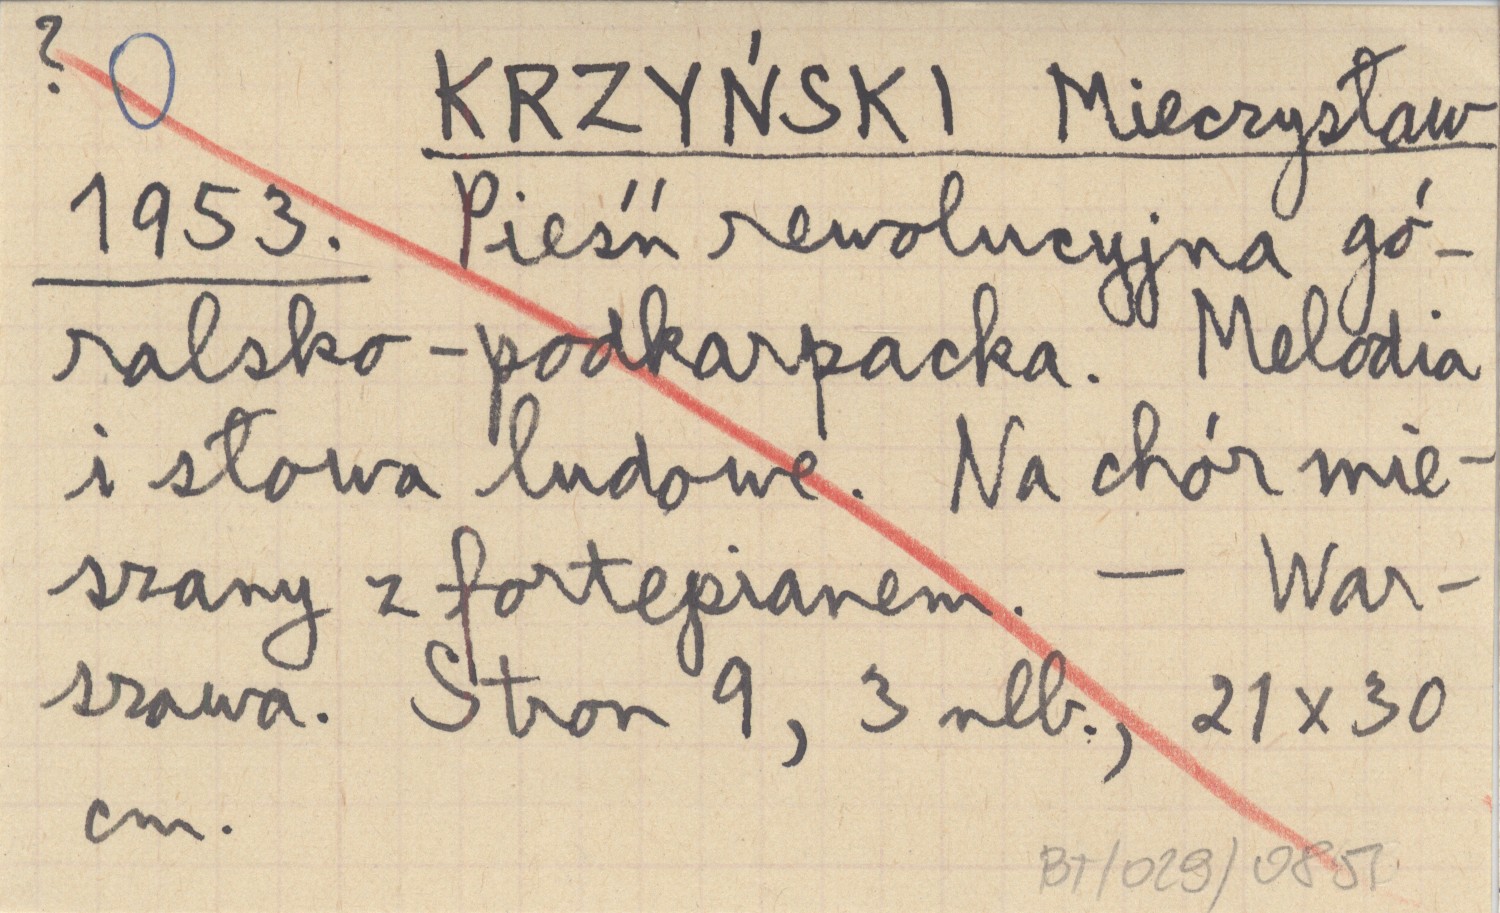 ?
KRZYŃSKI Mieczysław
1953. Pieśń rewolucyjna gó-
ralsko-podkarpacka. Melodia
i słowa ludowe. Na chór mie-
szany z fortepianem. — War-
szawa. Stron 9, 3 nlb., 21x30
cm.
BT/029/0851